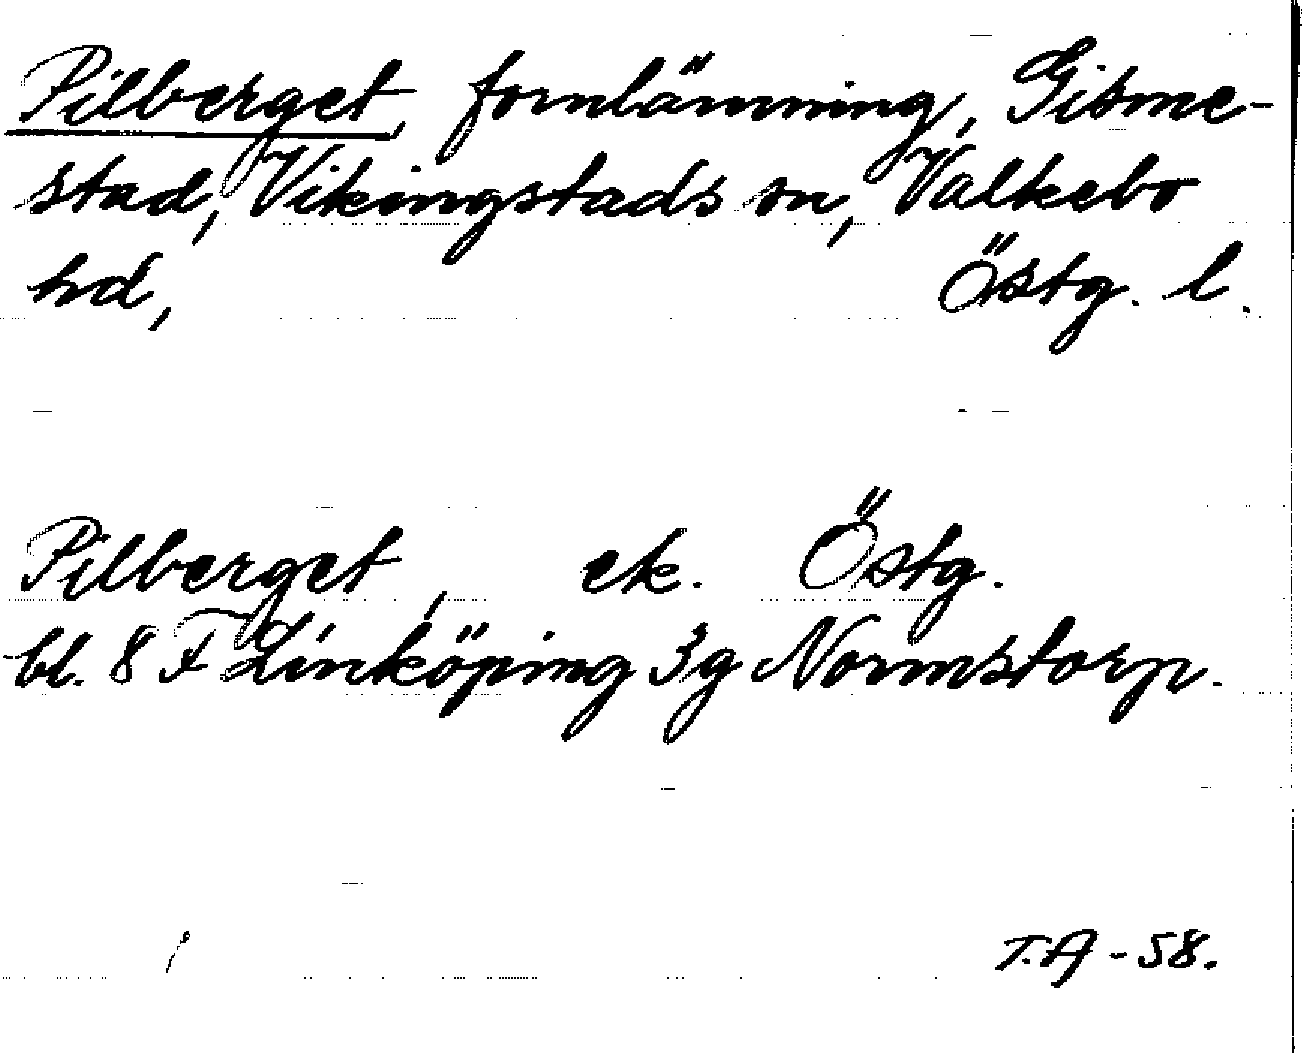 Pilberget, fornlämning, Gisme-
stad, Vikingstads sn, Valkebo
hd, Östg. l.
Pilberget, ek. Östg.
bl. 8 F Linköping 3g Normstorp.
T.A -58.